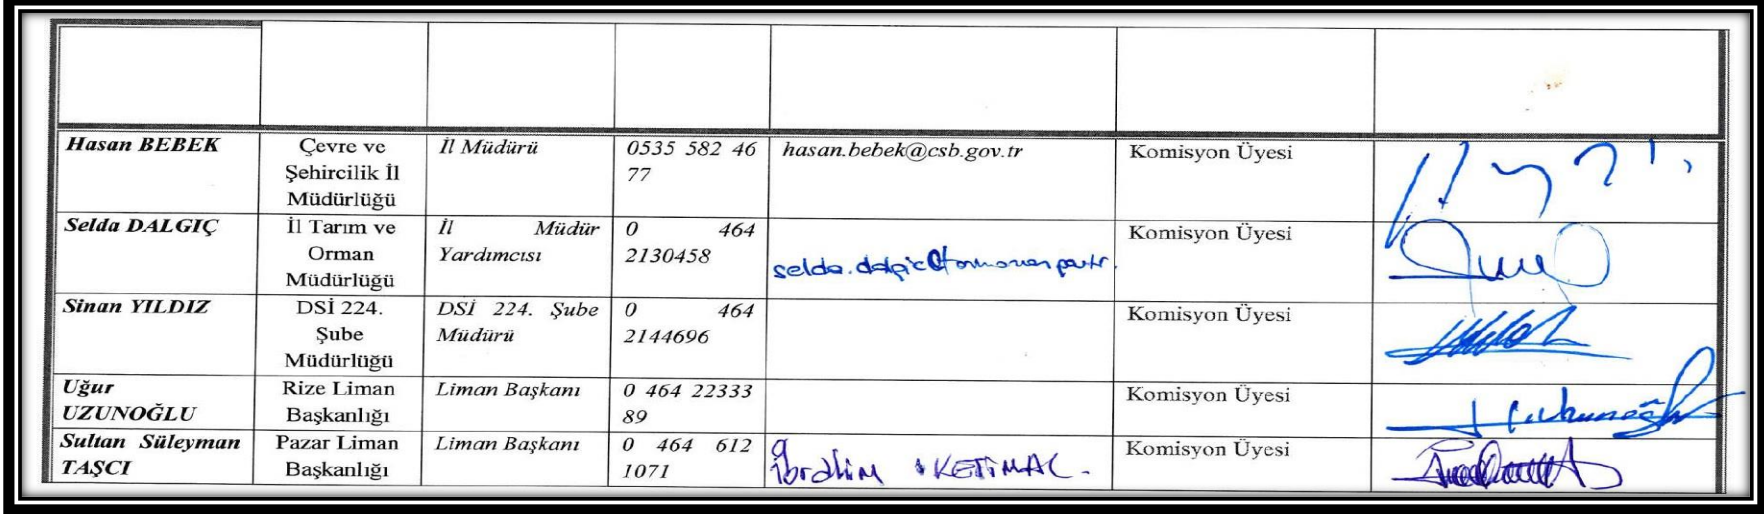 Hasan BEBEK
Çevre ve
Şehircilik İl
Müdürlüğü
İl Müdürü
0535 582 46
77
hasan.bebek@csb.gov.tr
Komisyon Üyesi
Selda DALGIÇ
İl Tarım ve
Orman
Müdürlüğü
İl Müdür
Yardımcısı
0 464
2130458
Komisyon Üyesi
Sinan YILDIZ
DSİ 224.
Şube
Müdürlüğü
DSİ 224. Şube
Müdürü
0 464
2144696
Komisyon Üyesi
Uğur
UZUNOĞLU
Rize Liman
Başkanlığı
Liman Başkanı
0 464 22333
89
Komisyon Üyesi
Sultan Süleyman
TAŞCI
Pazar Liman
Başkanlığı
Liman Başkanı
0 464 612
1071
İbrahim
Komisyon Üyesi